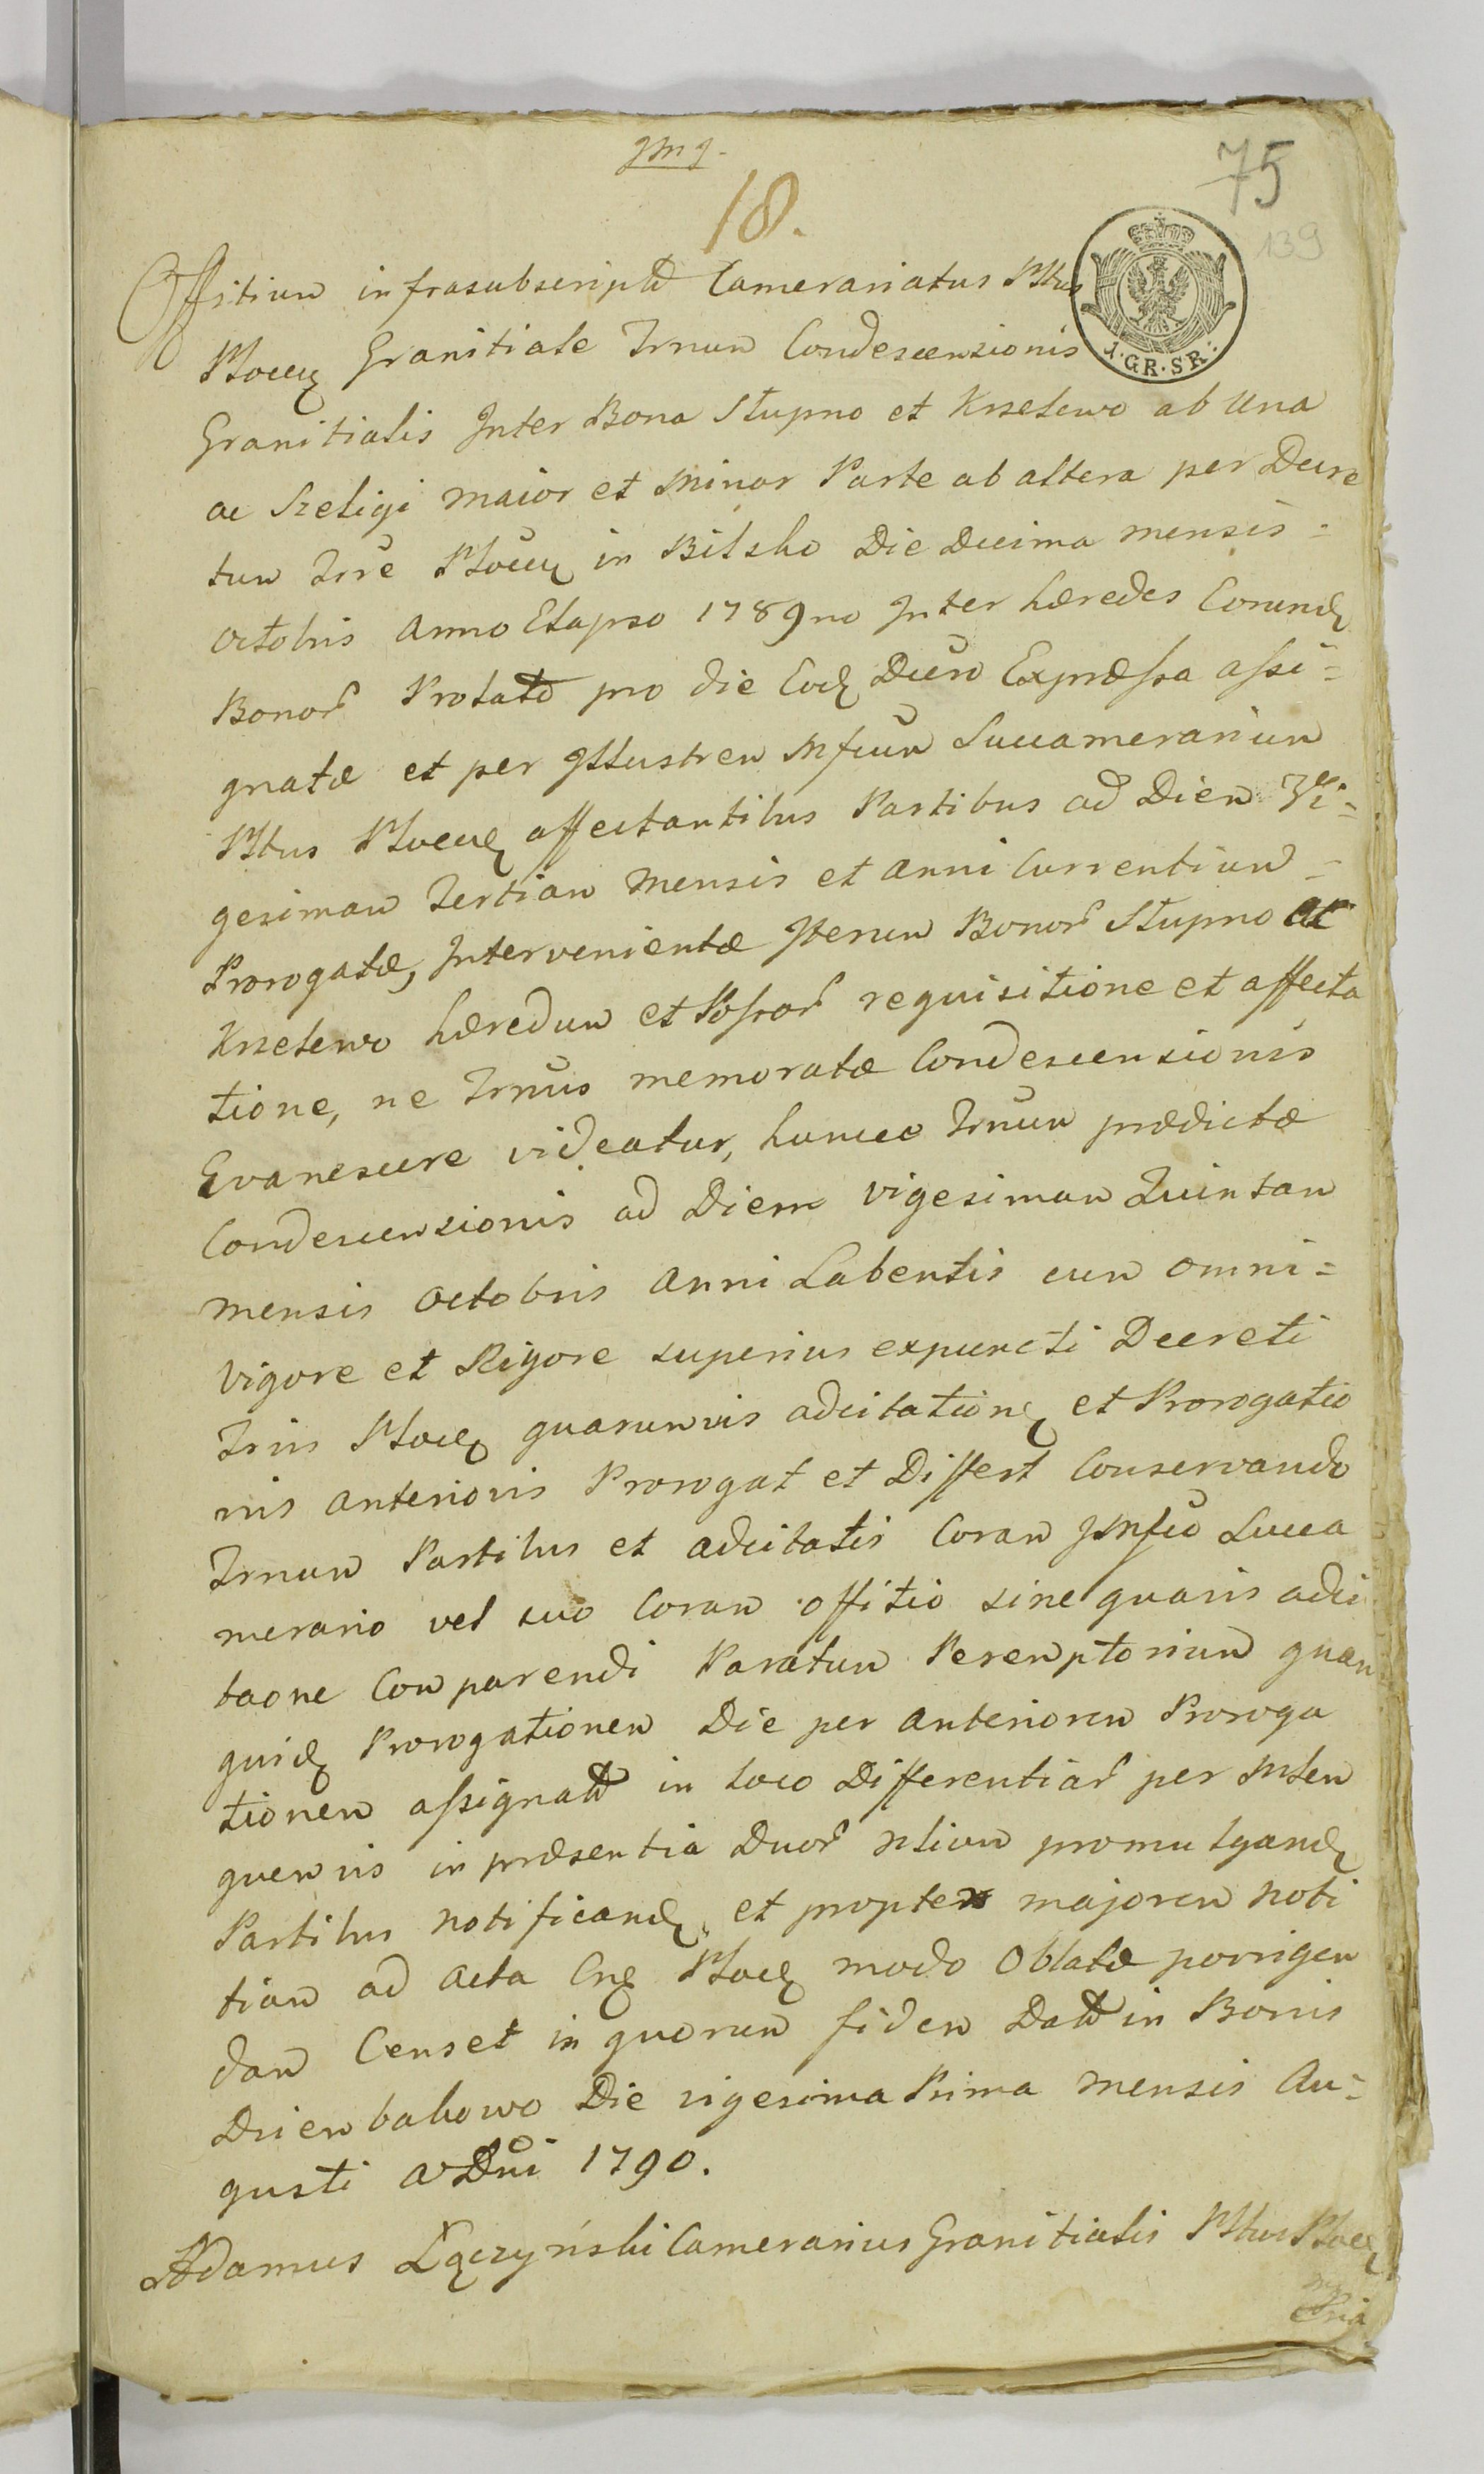 JMJ.
75
18.
139
1·GR·SR:
Offitium infrasubscriptu Camerariatus Pltus
Ploceň Granitiale Trnum Condescensionis
Granitialis Inter Bona Słupno et Krzelewo ab Una
ac Szeligi maior et Minor Parte ab altera per Decre
tum Trre Ploceň in Bilsko Die Decima mensis =
Octobris Anno Elapso 1789no Inter hæredes Eorund
Bonor Prolato pro die Eod Decu Expræssa assi=
gnatæ et per Illustrem Mfcum Succamerarium
Pltus Ploceň affectantibus Partibus ad Diem Vi=
gesimam Tertiam Mensis et Anni Currentium =
Prorogatæ, Intervenientæ Iterum Bonor Słupno ac
Krzelewo hæredum et Possor requisitione et affecta
tione, ne Trnus memoratæ Condescensionis
Evanescere videatur, huncce Trnum prædictæ
Condescensionis ad Diem vigesimam Quintam
mensis Octobris Anni Labentis cum omni=
vigore et Rigore superius expuncti Decreti
Trris Ploceň quarumvis adcitation et Prorogatio
nis anterioris Prorogat et Differt Conservando
Trnum Partibus et adcitatis Coram JMfco Succa
merario vel suo Coram Offitio sine quavis adci
taone Comparendi Paratum Peremptorium quam
quid Prorogationem Die per anteriorem Proroga
tionem assignatu in loco Differentiar per Mlem
quemvis in præsentia Duor Nlium promulgand
Partibus notificand et propter majorem noti
tiam ad Acta Cn Ploceň modo Oblatæ porrigen
dam Censet in quorum fidem Datu in Bonis
Dziembakowo Die vigesima Prima mensis Au=
gusti A Dni 1790.
Adamus Łączyński Camerarius Granitialis Pltus Ploceň
mppria